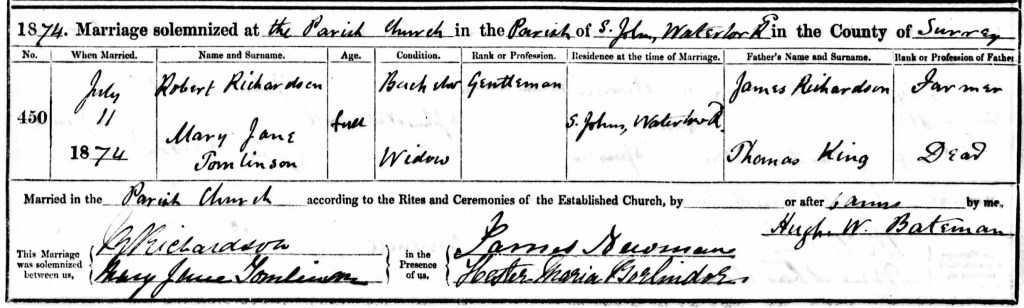 1874. Marriage solemnized at the Parish Church in the Parish of S. John, Waterloo Rd in the County of Surrey
No. When Married. Name and Surname. Age. Condition. Rank or Profession. Residence at the time of Marriage. Father's Name and Surname. Rank or Profession of Father.
450 July 11 1874 Robert Richardson full Bachelor Gentleman S. Johns, Waterloo Rd James Richardson Farmer
Mary Jane Tomlinson Widow Thomas King Dead
Married in the Parish Church according to the Rites and Ceremonies of the Established Church, by or after Banns by me,
Hugh W. Bateman
This Marriage was solemnized between us, Richardson in the Presence of us, James Newman
Mary Jane Tomlinson Hester Maria